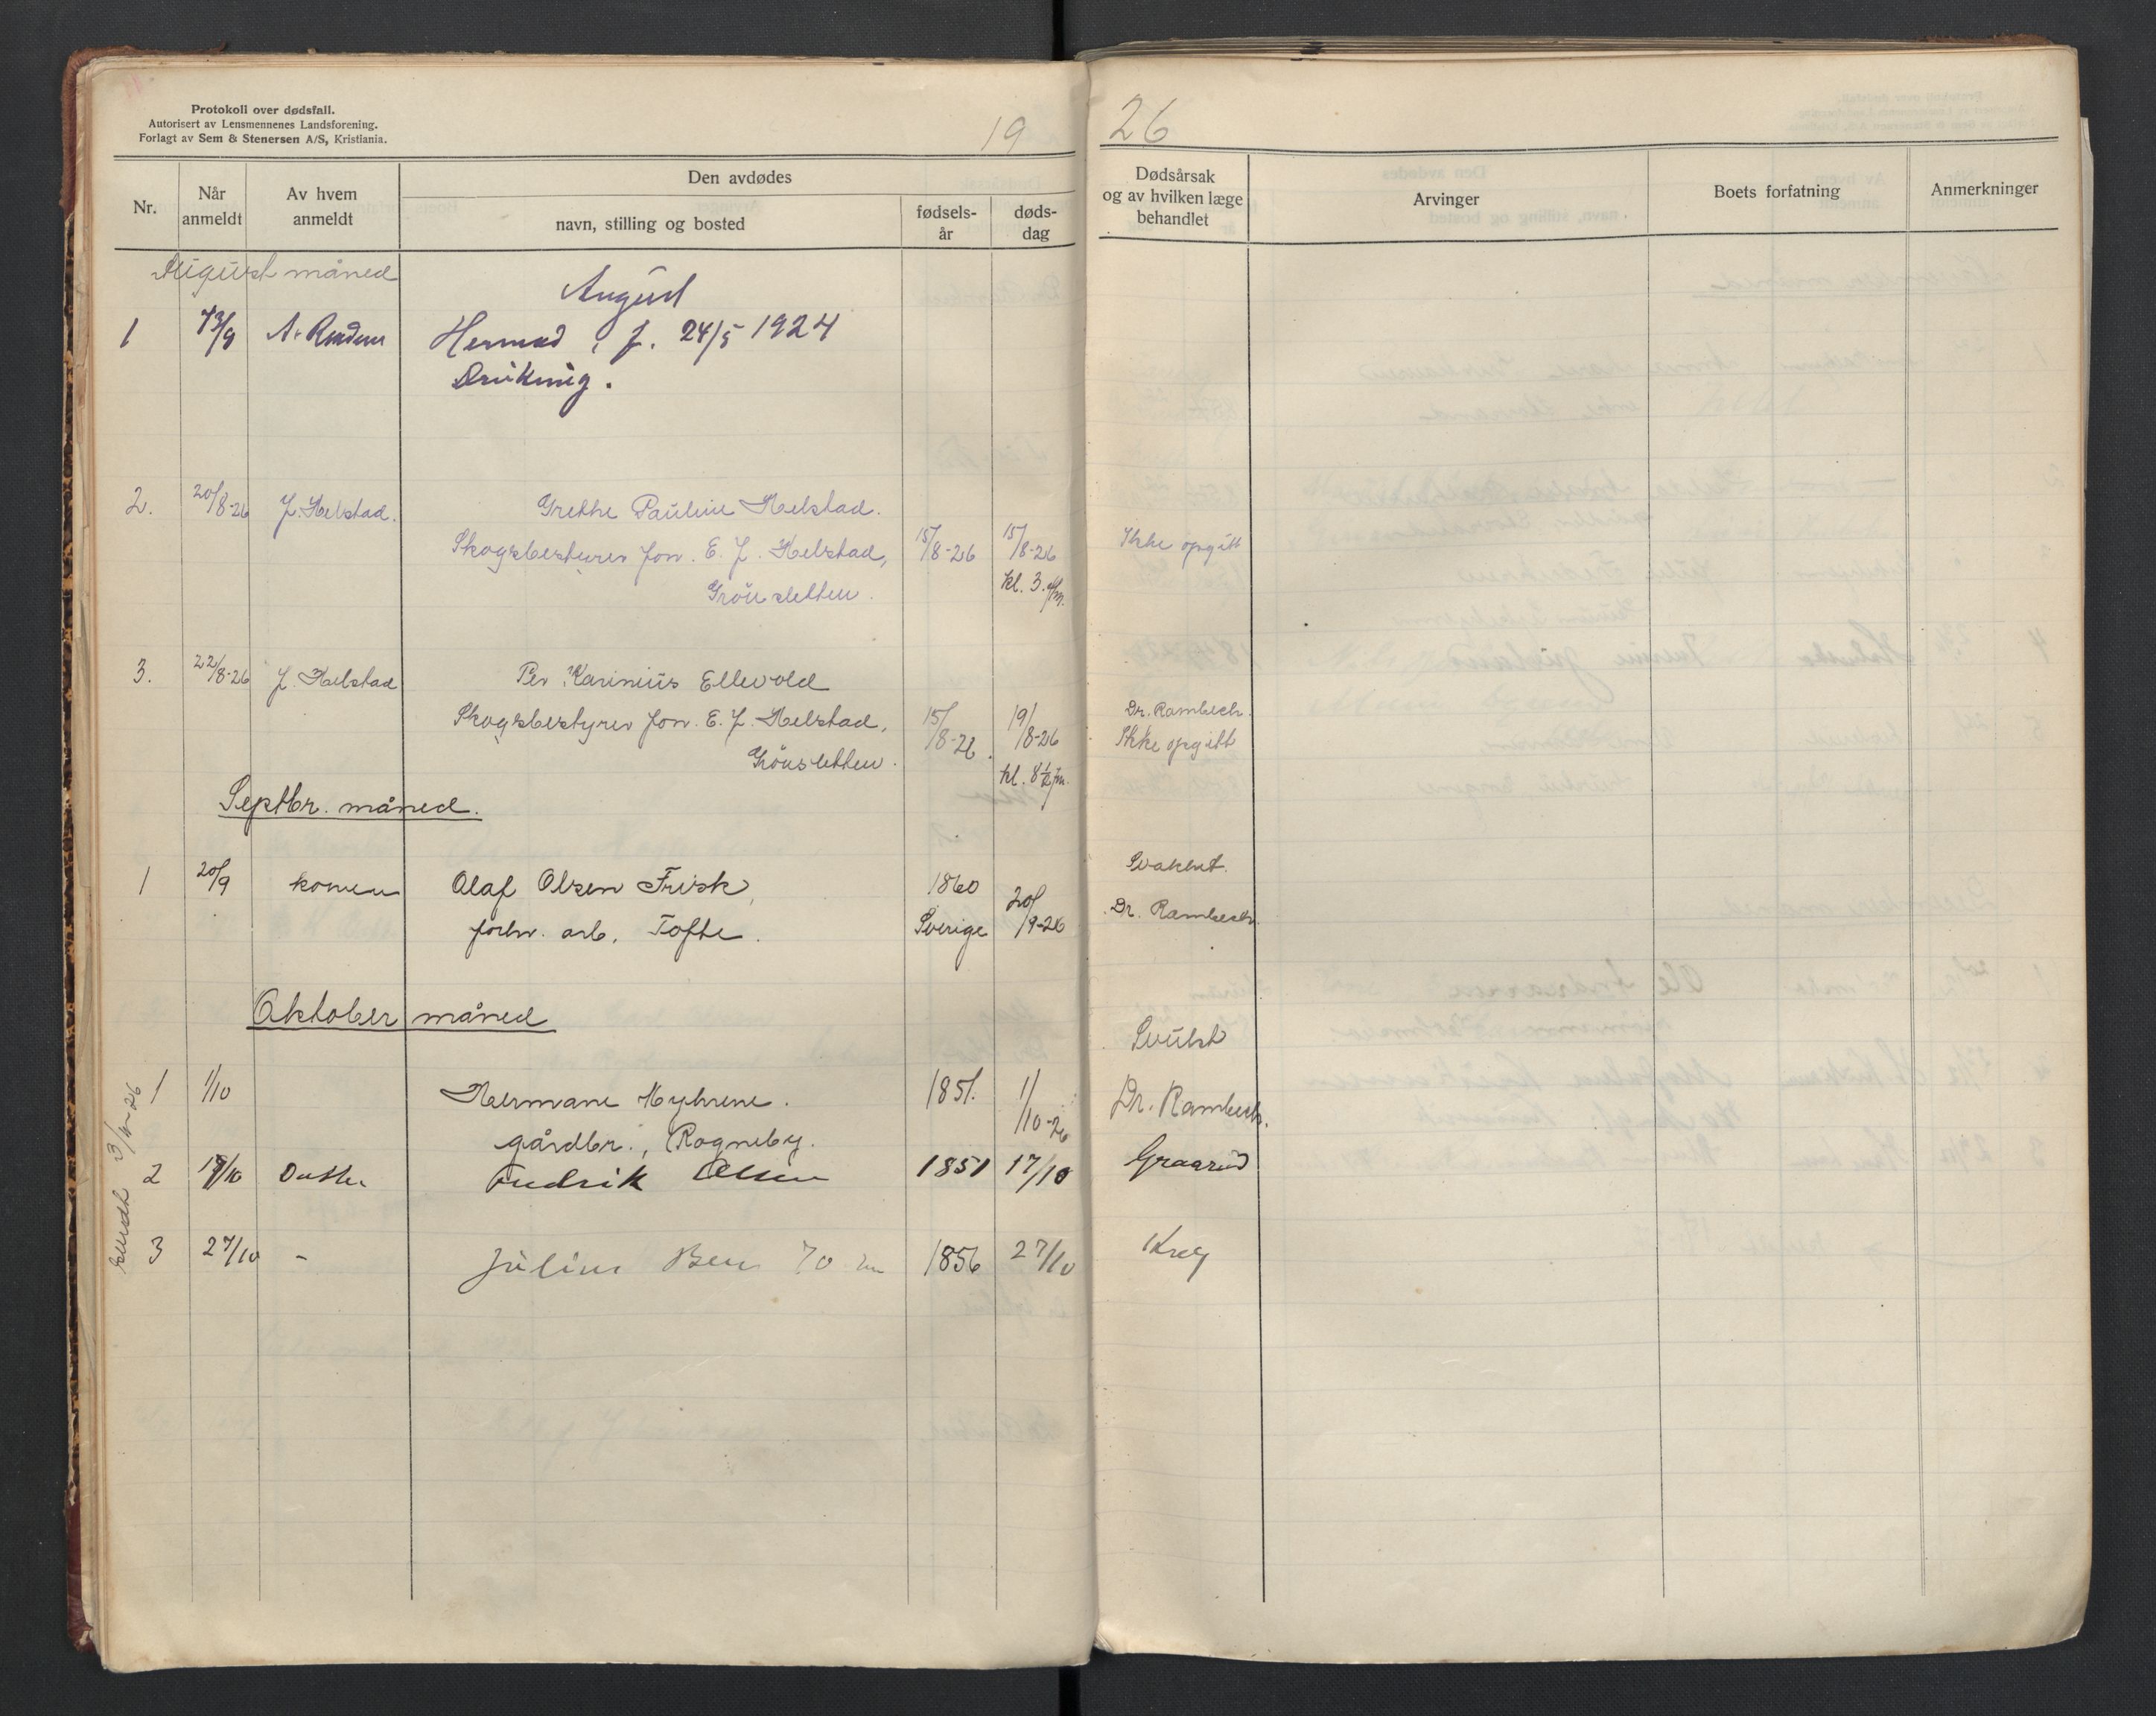 Protokoll over dødsfall.
Autorisert av Lensmennenes Landsforening.
Forlagt av Sem & Stenersen A/S, Kristiania.
19 26
Nr.
Når anmeldt
Av hvem anmeldt
Den avdødes
navn, stilling og bosted
fødsels-år
døds-dag
Dødsårsak og av hvilken læge behandlet
Arvinger
Boets forfatning
Anmerkninger
August måned
August
1 A. Hermod, f. 24/5 1924
Drukning.
2. 20/8-26 J. Helstad. Grethe Pauline Helstad.
Skogsbestyrer Jon. E. J. Helstad, 15/8-26 15/8-26 Ikke opgitt
Grönsletten. kl. 3. e/m.
3. 22/8-26 J. Helstad Per Karinius Ellevold
Skogsbestyrer Jon. E. J. Helstad, 15/8-26. 19/8-26 Dr. Rambech. Ikke opgitt
Grönsletten. kl. 8½ fm.
Septbr. måned.
1 20/9 konen Olaf Olsen Frisk, 1860 20/9-26 Svakhet.
forhv. arb. Tofte. Sverige Dr. Rambech.
Oktober måned
Svulst
1 1/10 Hermane Myhrene. 1851. 1/10-26 Dr. Rambech.
gårdbr., Rogneby.
2 19/10 Fredrik Olsen 1851 17/10 Graarud
3 27/10 - Julius 70 1856 27/10
sendt 3/10-26